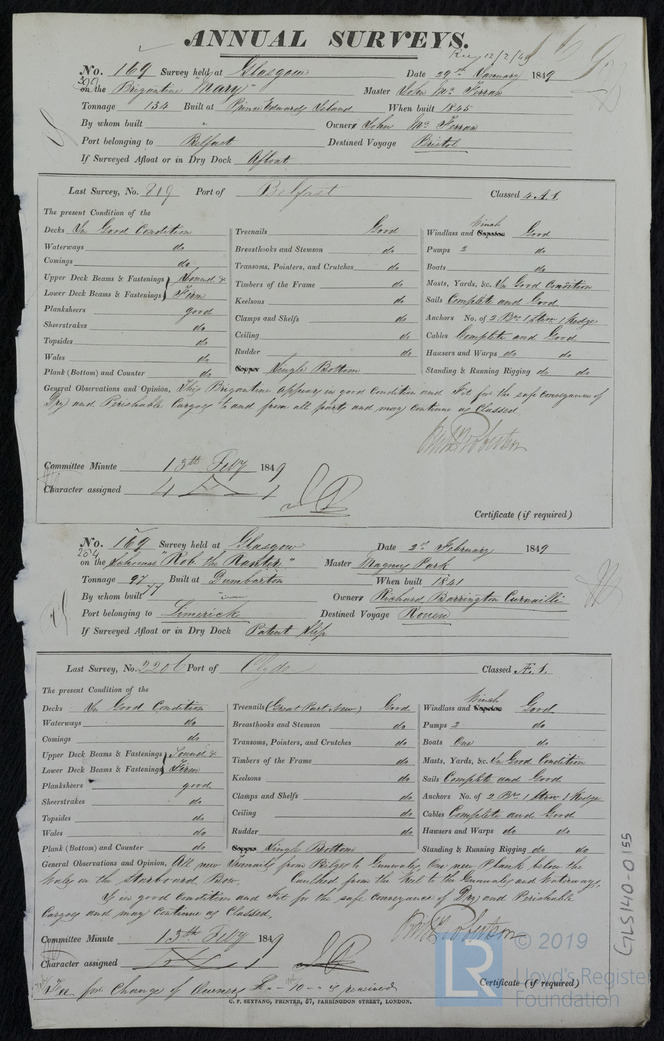 ANNUAL SURVEYS.
12/2/49
No. 169 Survey held at Glasgow Date 29th January 1849
on the Brigantine "Mary" Master John Mc Ferran
Tonnage 134 Built at Prince Edwards Island When built 1845
By whom built " Owners John Mc Ferran
Port belonging to Belfast Destined Voyage Bristol
If Surveyed Afloat or in Dry Dock Afloat
Last Survey, No. 219 Port of Belfast Classed 4.A.1.
The present Condition of the
Decks In Good Condition
Waterways do
Comings do
Upper Deck Beams & Fastenings Sound &
Lower Deck Beams & Fastenings Firm
Planksheers good
Sheerstrakes do
Topsides do
Wales do
Plank (Bottom) and Counter do
Treenails Good
Breasthooks and Stemson do
Transoms, Pointers, and Crutches do
Timbers of the Frame do
Keelsons do
Clamps and Shelfs do
Ceiling do
Rudder do
Copper Single Bottom
Winch
Windlass and Capstan Good
Pumps 2 do
Boats do
Masts, Yards, &c. In Good Condition
Sails Complete and Good
Anchors No. of 2 Br. 1 Stream 1 Kedge
Cables Complete and Good
Hawsers and Warps do do
Standing & Running Rigging do do
General Observations and Opinion, This Brigantine appears in good Condition and Fit for the safe conveyance of
Dry and Perishable Cargoes to and from all parts and may continue as Classed
Committee Minute 13th Feby 1849
Character assigned 4 A 1
Certificate (if required)
No. 169 Survey held at Glasgow Date 2d February 1849
on the Schooner "Rob the Ranter" Master Magnus Park
Tonnage 97 Built at Dumbarton When built 1841
77
By whom built " Owners Richard Barrington
Port belonging to Limerick Destined Voyage Rouen
If Surveyed Afloat or in Dry Dock Patent Slip
Last Survey, No. 220 Port of Clyde Classed Æ.1.
The present Condition of the
Decks In Good Condition
Waterways do
Comings do
Upper Deck Beams & Fastenings Sound &
Lower Deck Beams & Fastenings Firm
Planksheers good
Sheerstrakes do
Topsides do
Wales do
Plank (Bottom) and Counter do
Treenails (Great Part New) Good
Breasthooks and Stemson do
Transoms, Pointers, and Crutches do
Timbers of the Frame do
Keelsons do
Clamps and Shelfs do
Ceiling do
Rudder do
Copper Single Bottom
Winch
Windlass and Capstan Good
Pumps 2 do
Boats One do
Masts, Yards, &c. In Good Condition
Sails Complete and Good
Anchors No. of 2 Br. 1 Stream 1 Kedge
Cables Complete and Good
Hawsers and Warps do do
Standing & Running Rigging do do
General Observations and Opinion, All new Treenails from Bilges to Gunwales, One new Plank below the
Wales on the Starboard Bow. Caulked from the Keel to the Gunwales and Waterways,
Is in good Condition and Fit for the safe Conveyance of Dry and Perishable
Cargoes and may Continue as Classed.
Committee Minute 13th Feby 1849
Character assigned
Certificate (if required)
Fee for Change of Owners £ " 10 " received
C. F. SEYFANG, PRINTER, 57, FARRINGDON STREET, LONDON.
GLS140-0155
LR
© 2019
Lloyd's Register
Foundation